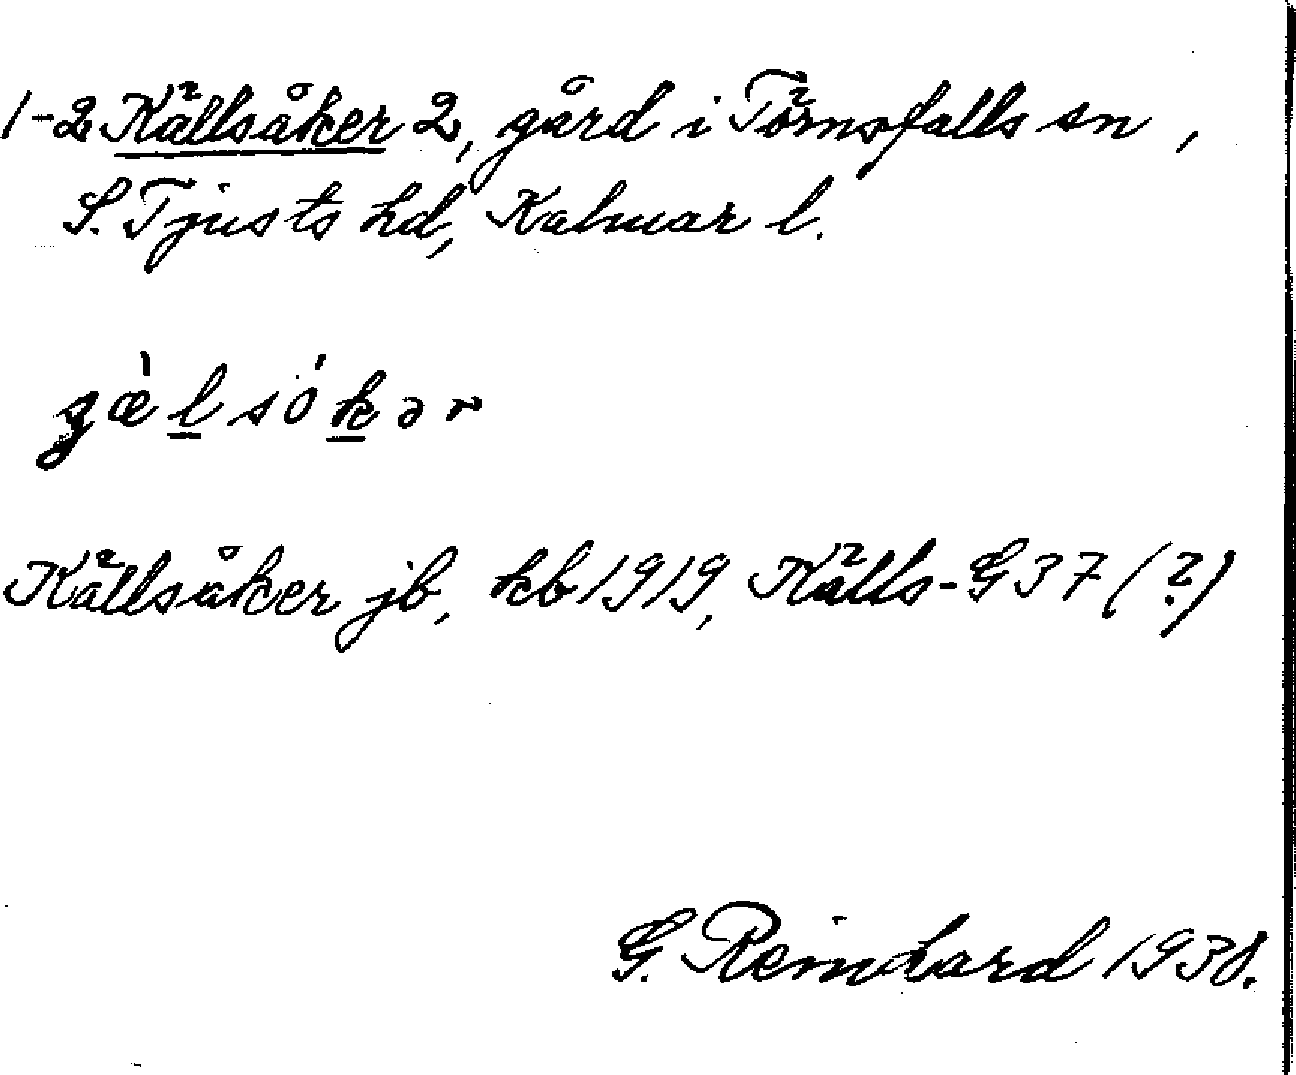 1-2 Källsåker 2, gård i Törnsfalls sn,
S. Tjusts hd, Kalmar l.
gæ̀lsókər
Källsåker jb, kb 1919, Källs- G 37 (?)
G. Reinhard 1938.